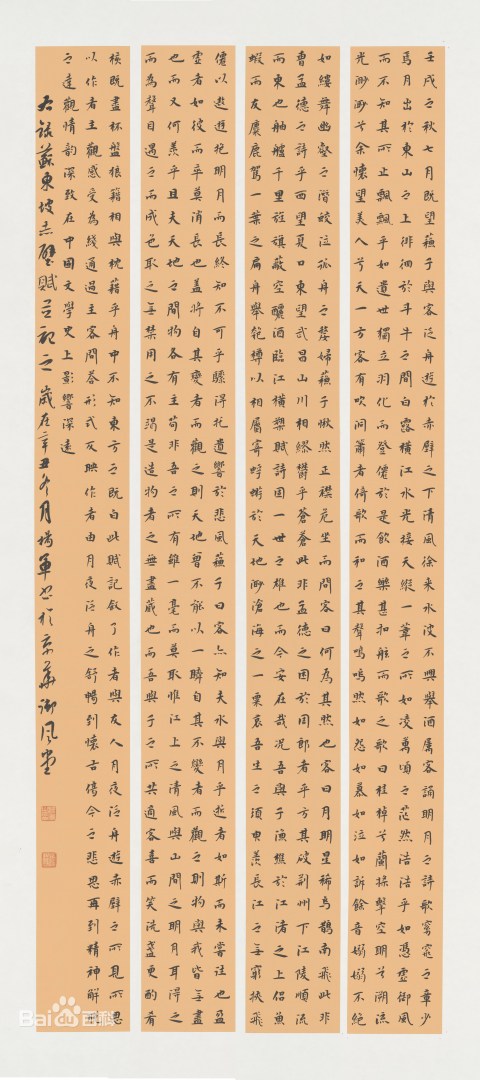 壬戌之秋七月既望蘇子與客泛舟遊於赤壁之下清風徐來水波不興舉酒屬客誦明月之詩歌窈窕之章少
焉月出於東山之上徘徊於斗牛之間白露橫江水光接天縱一葦之所如凌萬頃之茫然浩浩乎如憑虛御風
而不知其所止飄飄乎如遺世獨立羽化而登僊於是飲酒樂甚扣舷而歌之歌曰桂棹兮蘭槳擊空明兮溯流
光渺渺兮余懷望美人兮天一方客有吹洞簫者倚歌而和之其聲嗚嗚然如怨如慕如泣如訴餘音嫋嫋不絕
如縷舞幽壑之潛蛟泣孤舟之嫠婦蘇子愀然正襟危坐而問客曰何為其然也客曰月明星稀烏鵲南飛此非
曹孟德之詩乎西望夏口東望武昌山川相繆鬱乎蒼蒼此非孟德之困於周郎者乎方其破荊州下江陵順流
而東也舳艫千里旌旗蔽空釃酒臨江橫槊賦詩固一世之雄也而今安在哉況吾與子漁樵於江渚之上侶魚
蝦而友麋鹿駕一葉之扁舟舉匏樽以相屬寄蜉蝣於天地渺滄海之一粟哀吾生之須臾羨長江之無窮挾飛
僊以遨遊抱明月而長終知不可乎驟得托遺響於悲風蘇子曰客亦知夫水與月乎逝者如斯而未嘗往也盈
虛者如彼而卒莫消長也蓋將自其變者而觀之則天地曾不能以一瞬自其不變者而觀之則物與我皆無盡
也而又何羨乎且夫天地之間物各有主苟非吾之所有雖一毫而莫取惟江上之清風與山間之明月耳得之
而為聲目遇之而成色取之無禁用之不竭是造物者之無盡藏也而吾與子之所共適客喜而笑洗盞更酌肴
核既盡杯盤狼籍相與枕藉乎舟中不知東方之既白此賦記敘了作者與友人月夜泛舟遊赤壁之所見所思
以作者主觀感受為綫通過主客問答形式反映作者由月夜泛舟之舒暢到懷古傷今之悲思再到精神解脫
之達觀情韵深致在中國文學史上影響深遠
右錄蘇東坡赤壁賦並記之歲在辛丑冬月揚軍書於京華御風堂
Baidu百科